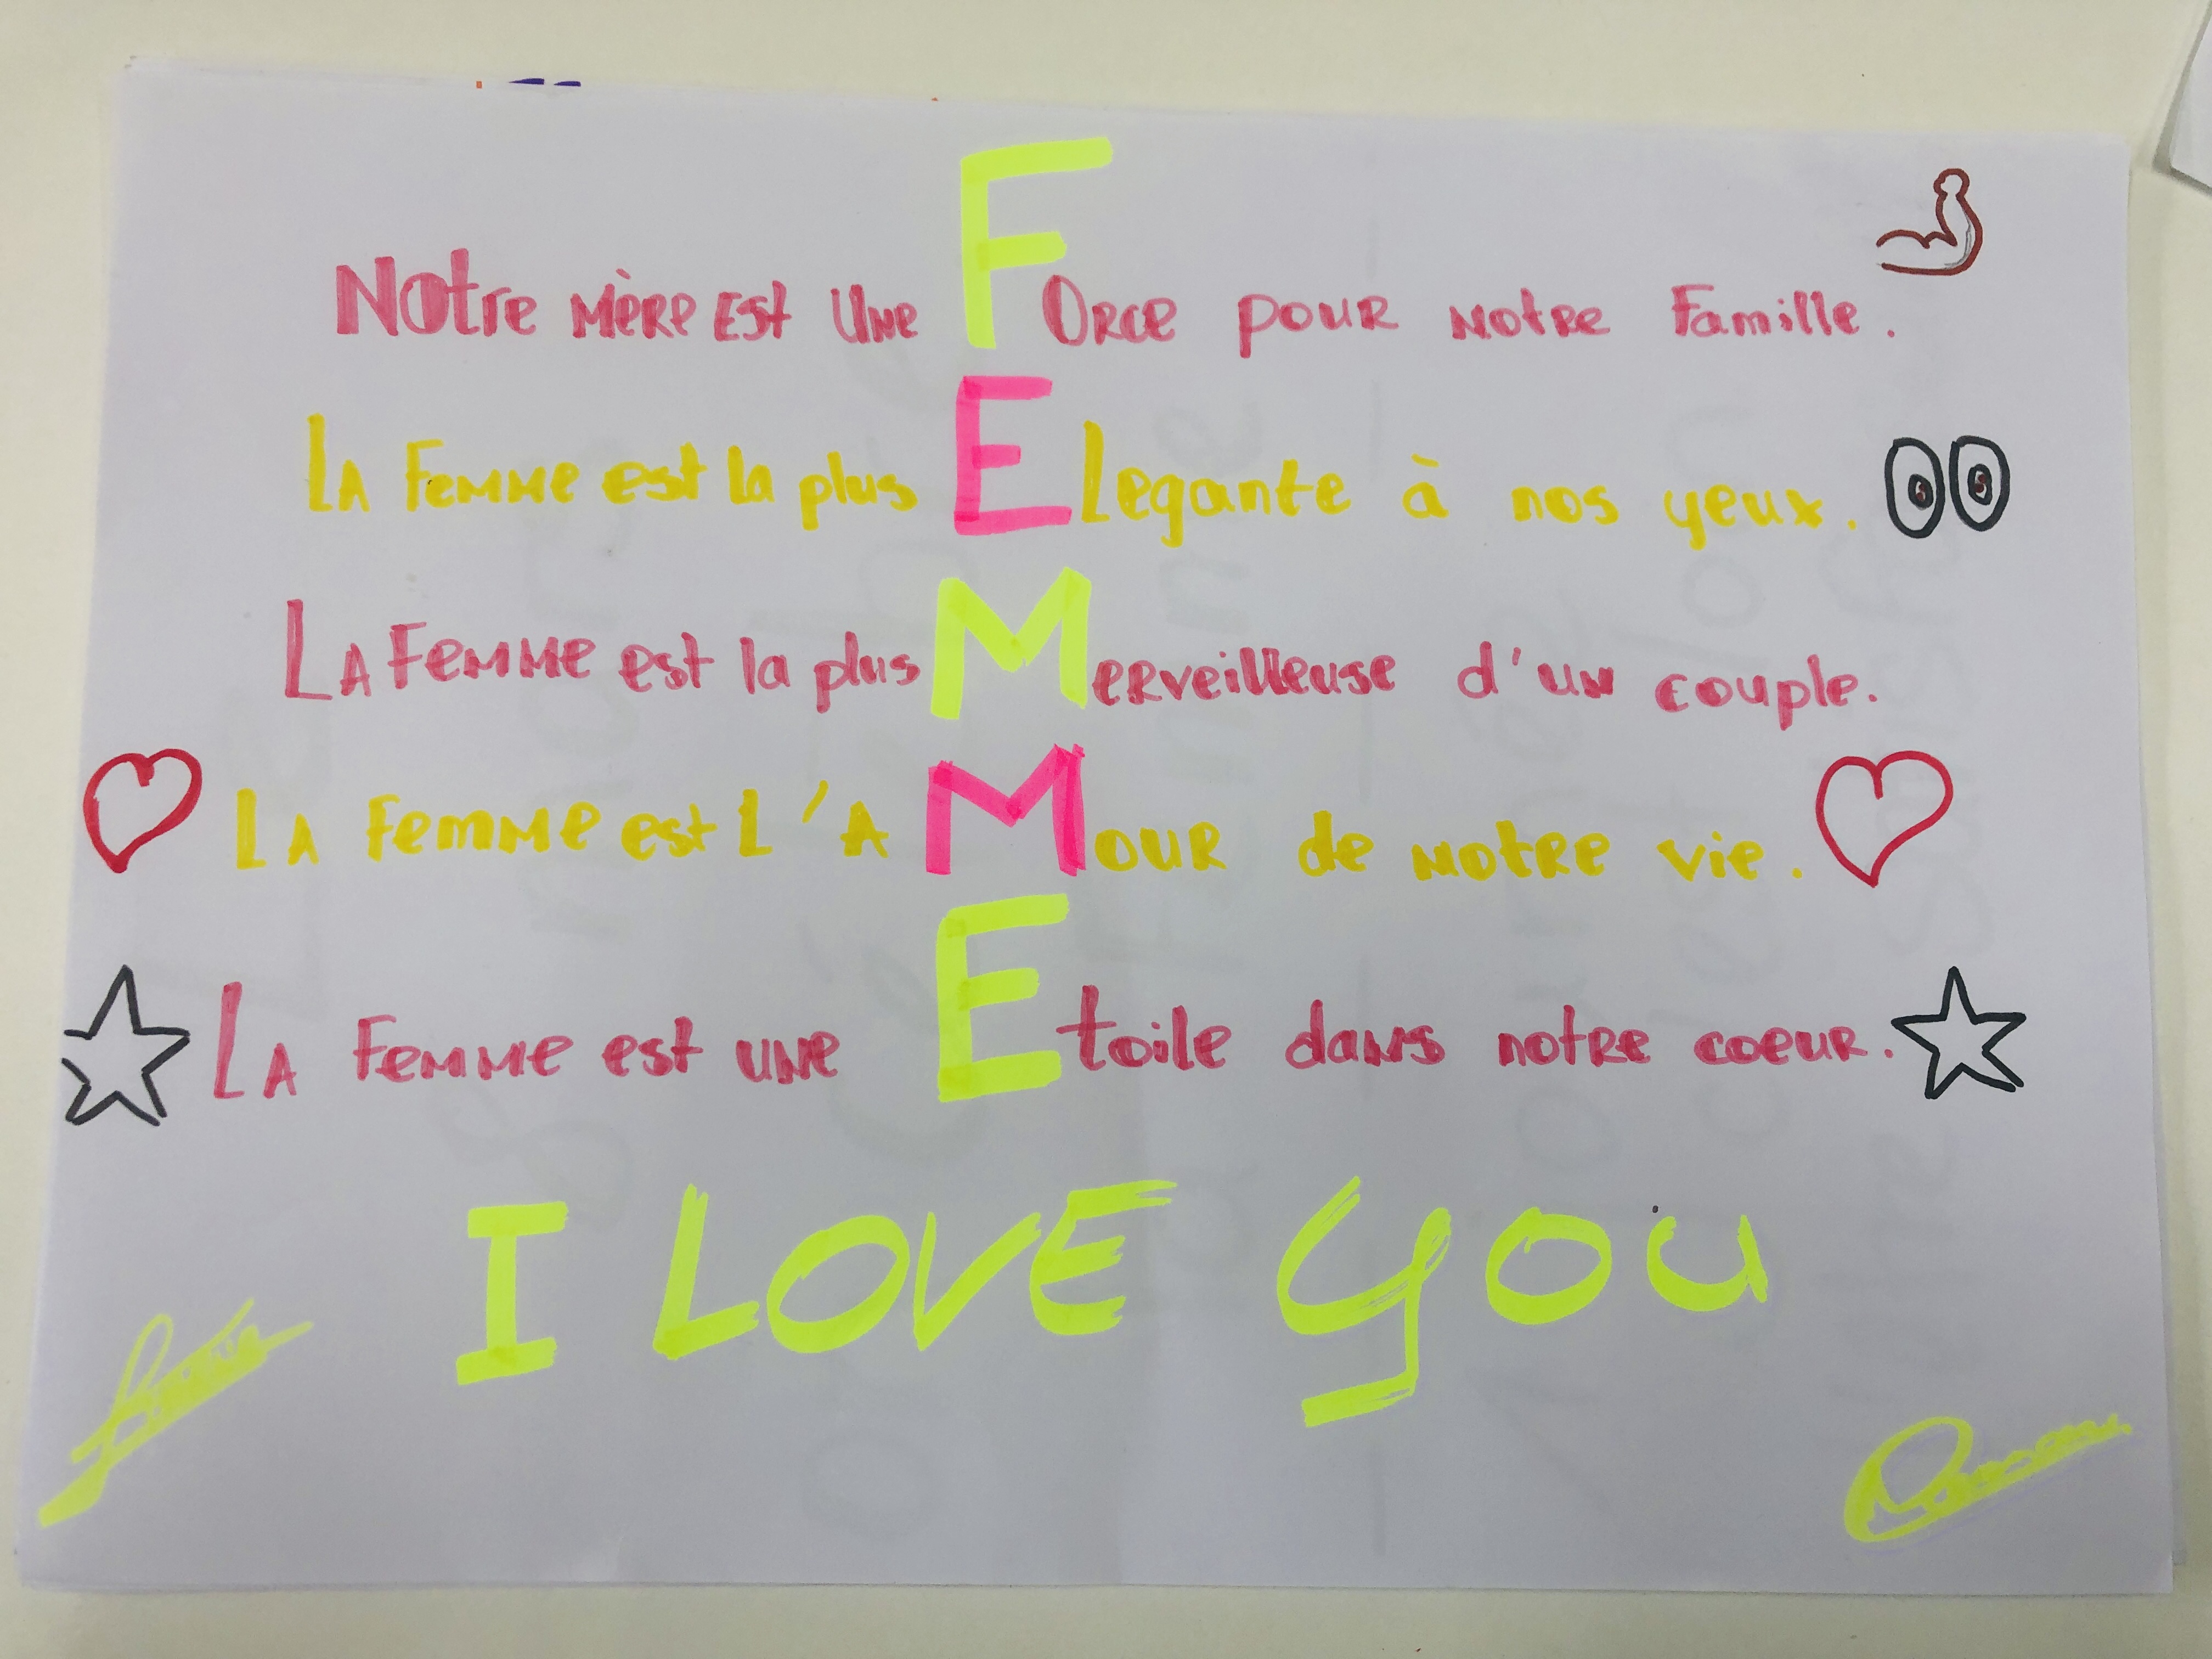 Notre mère est une Force pour notre Famille.
La Femme est la plus Elegante à nos yeux.
La Femme est la plus Merveilleuse d'un couple.
La Femme est L'AMour de notre vie.
La Femme est une Etoile dans notre coeur.
I LOVE YOU